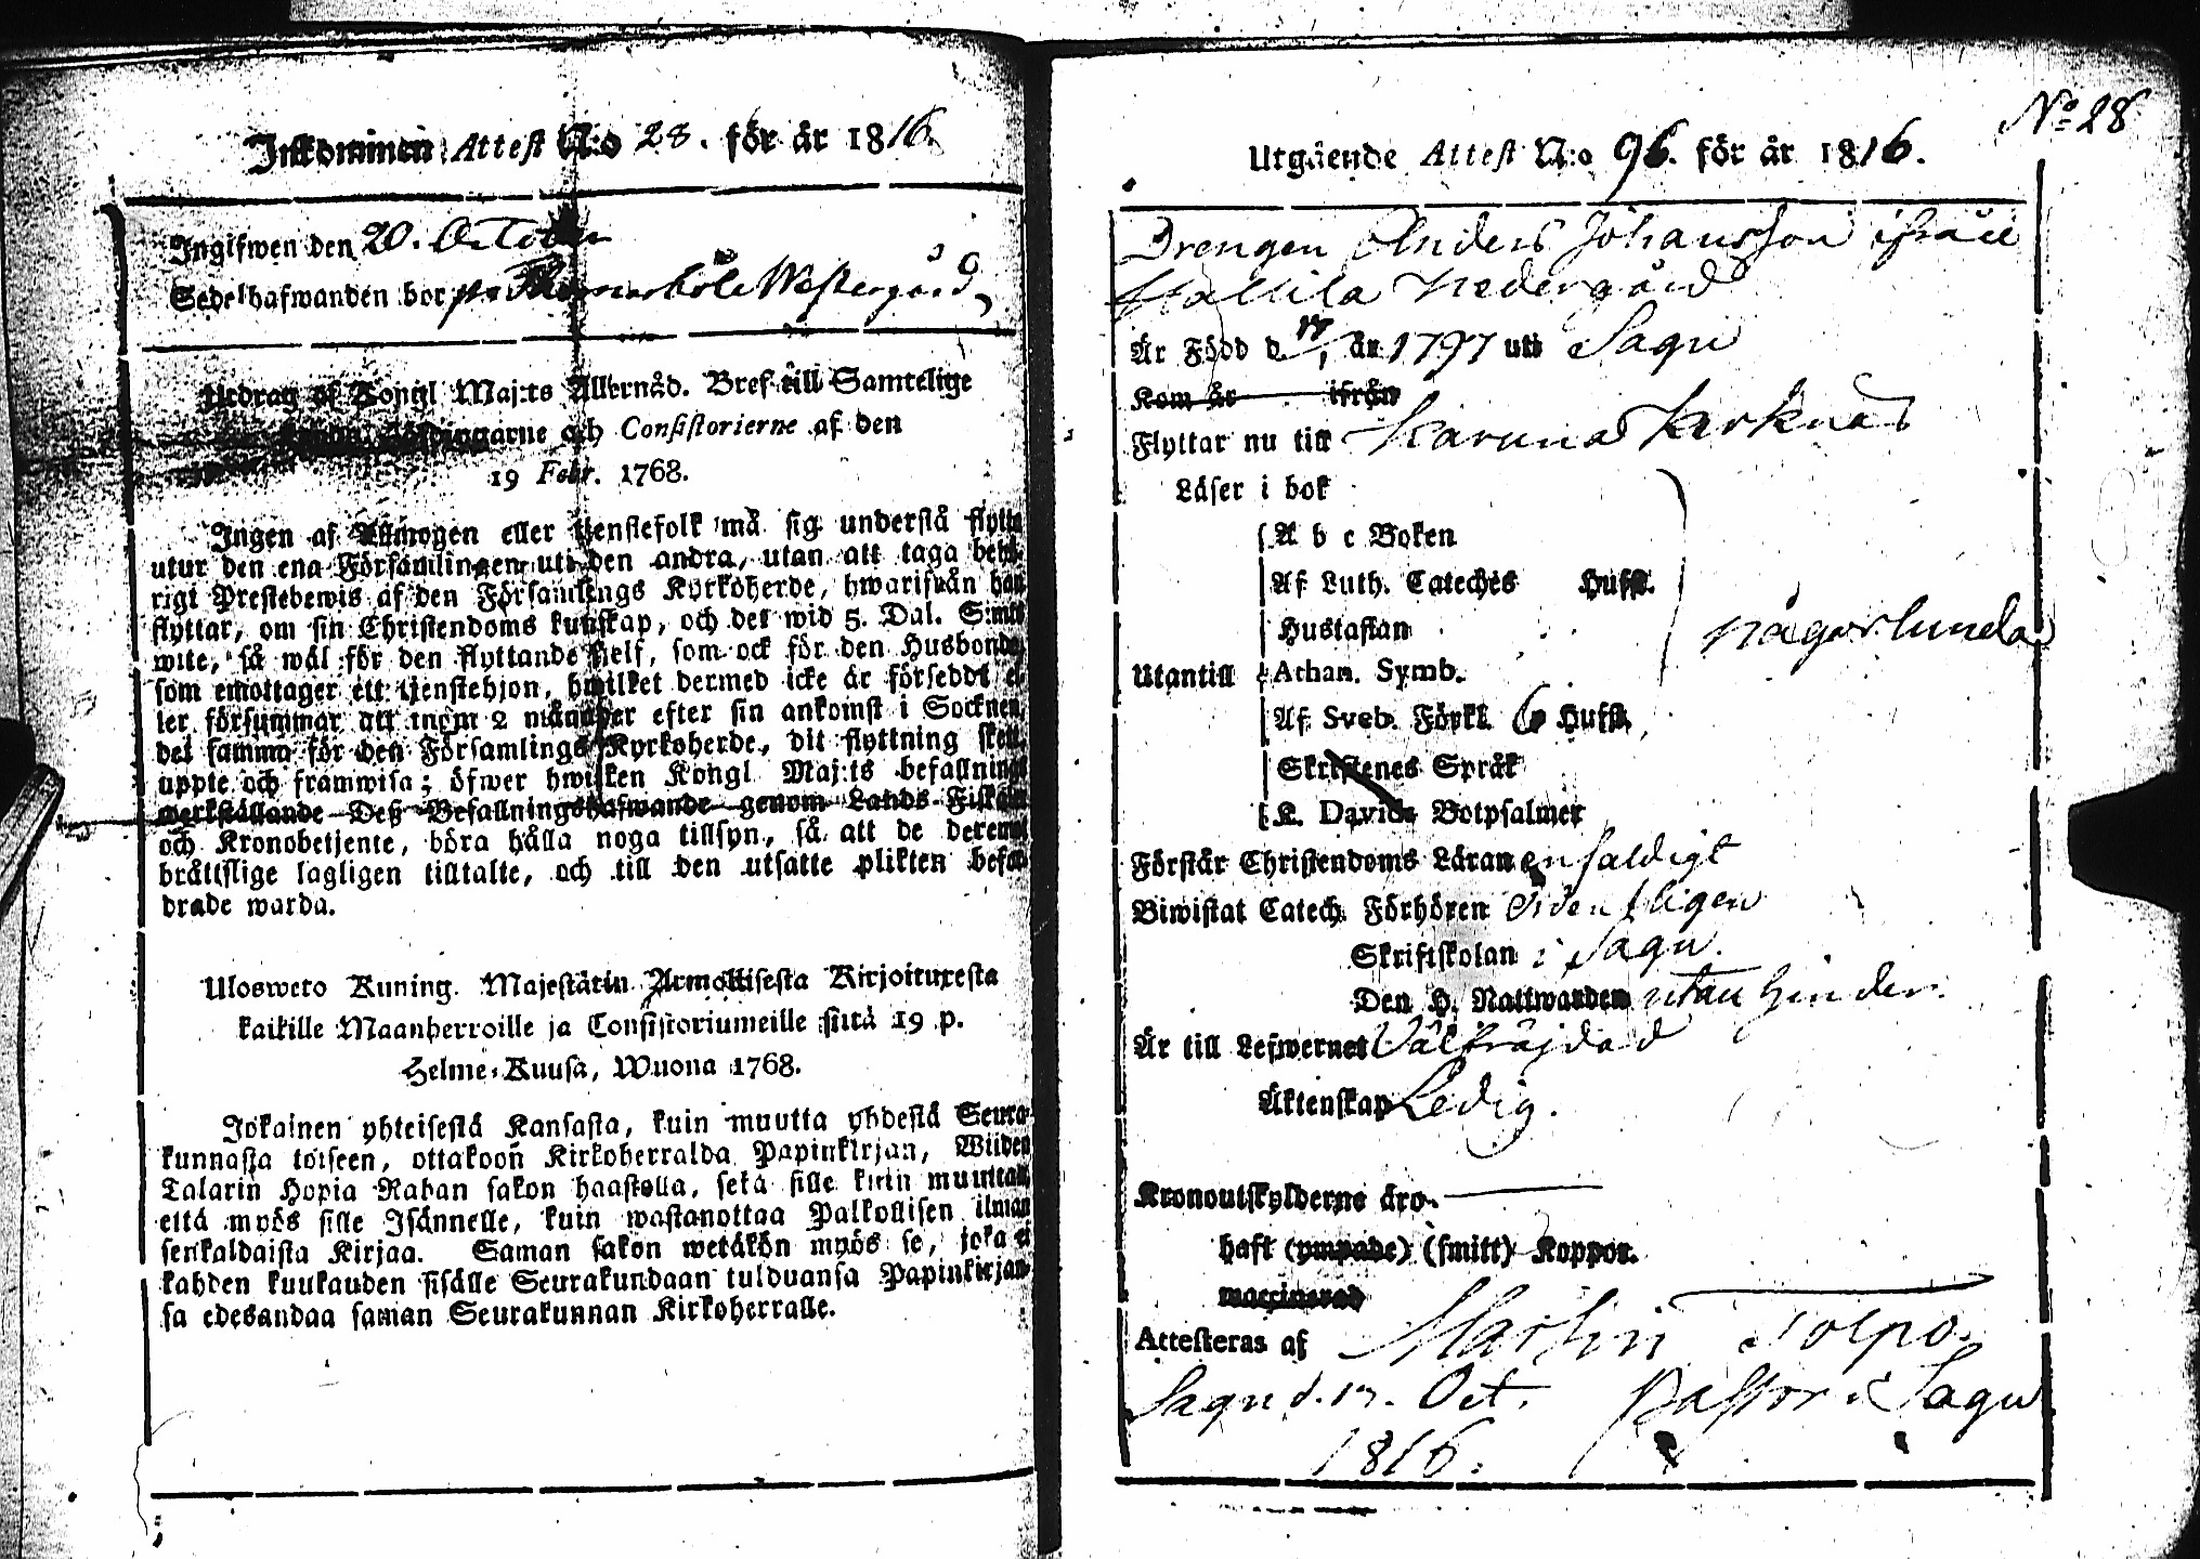 Inkommen Attest N:o 28. för år 1816.
Ingifwen den 20. October
Sedelhafwanden bor på Westergård,
Utdrag af Kongl Maj:ts Allernåd. Bref till Samtelige
och Consistorierne af den
19 Febr. 1768.
Ingen af Allmogen eller tjenstefolk må sig understå flytta
utur den ena Församlingen uti den andra, utan att taga behö-
rigt Prestebewis af den Församlings Kyrkoherde, hwarifrån han
flyttar, om sin Christendoms kunskap, och det wid 5. Dal. S:mts
wite, så wäl för den flyttande sielf, som ock för den Husbonde,
som emottager ett tjenstehjon, hwilket dermed icke är förseddt el-
ler försummar att inom 2 månader efter sin ankomst i Socknen,
det samma för den Församlings Kyrkoherde, dit flyttning skett,
uppte och framwisa; öfwer hwilken Kongl Maj:ts befallnings
werkställande Deß Befallningshafwande genom Lands-Fiskaler
och Kronobetjente, böra hålla noga tillsyn, så att de deremot
bråttslige lagligen tilltalte, och till den utsatte plikten befor-
drade warda.
Ulosweto Kuning. Majestätin Armollisesta Kirjoituxesta
kaikille Maanherroille ja Consistoriumeille siitä 19 p.
Helme-Kuusa, Wuona 1768.
Jokainen yhteisestä Kansasta, kuin muutta yhdestä Seura-
kunnasta toiseen, ottakoon Kirkoherralda Papinkirjan, Wiiden
Talarin Hopia Rahan sakon haastolla, sekä sille kuin muuttaa,
että myös sille Isännelle, kuin wastanottaa Palkollisen ilman
senkaldaista Kirjaa. Saman sakon wetäkön myös se, joka ei
kahden kuukauden sisälle Seurakundaan tulduansa Papinkirjan-
sa edesandaa saman Seurakunnan Kirkoherralle.
No 28
Utgående Attest N:o 96. för år 1816.
Drengen Anders Johansson ifrån
Hallila Nedergård
Är Född d. 17/1 år 1797 uti Sagu
Kom år ifrån
Flyttar nu till Karuna Kerknäs
Läser i bok
A b c Boken
Af Luth. Cateches Hufst.
Hustaflan
någorlunda
Utantill Athan. Symb.
Af Sveb. Förkl. 6 Hufst.
Skriftenes Språk
K. Davids Botpsalmer
Förstår Christendoms Läran enfaldigt
Biwistat Catech. Förhören Ordentligen
Skriftskolan i Sagu.
Den H. Nattwarden utan hinder.
Är till Lefwernet Välfräjdad
Äktenskap Ledig.
Kronoutskylderne äro
haft (ympade) (smitt) Koppor.
waccinerad
Attesteras af Martin Tolpo.
Sagu d. 17. Oct. Pastor i Sagu
1816.